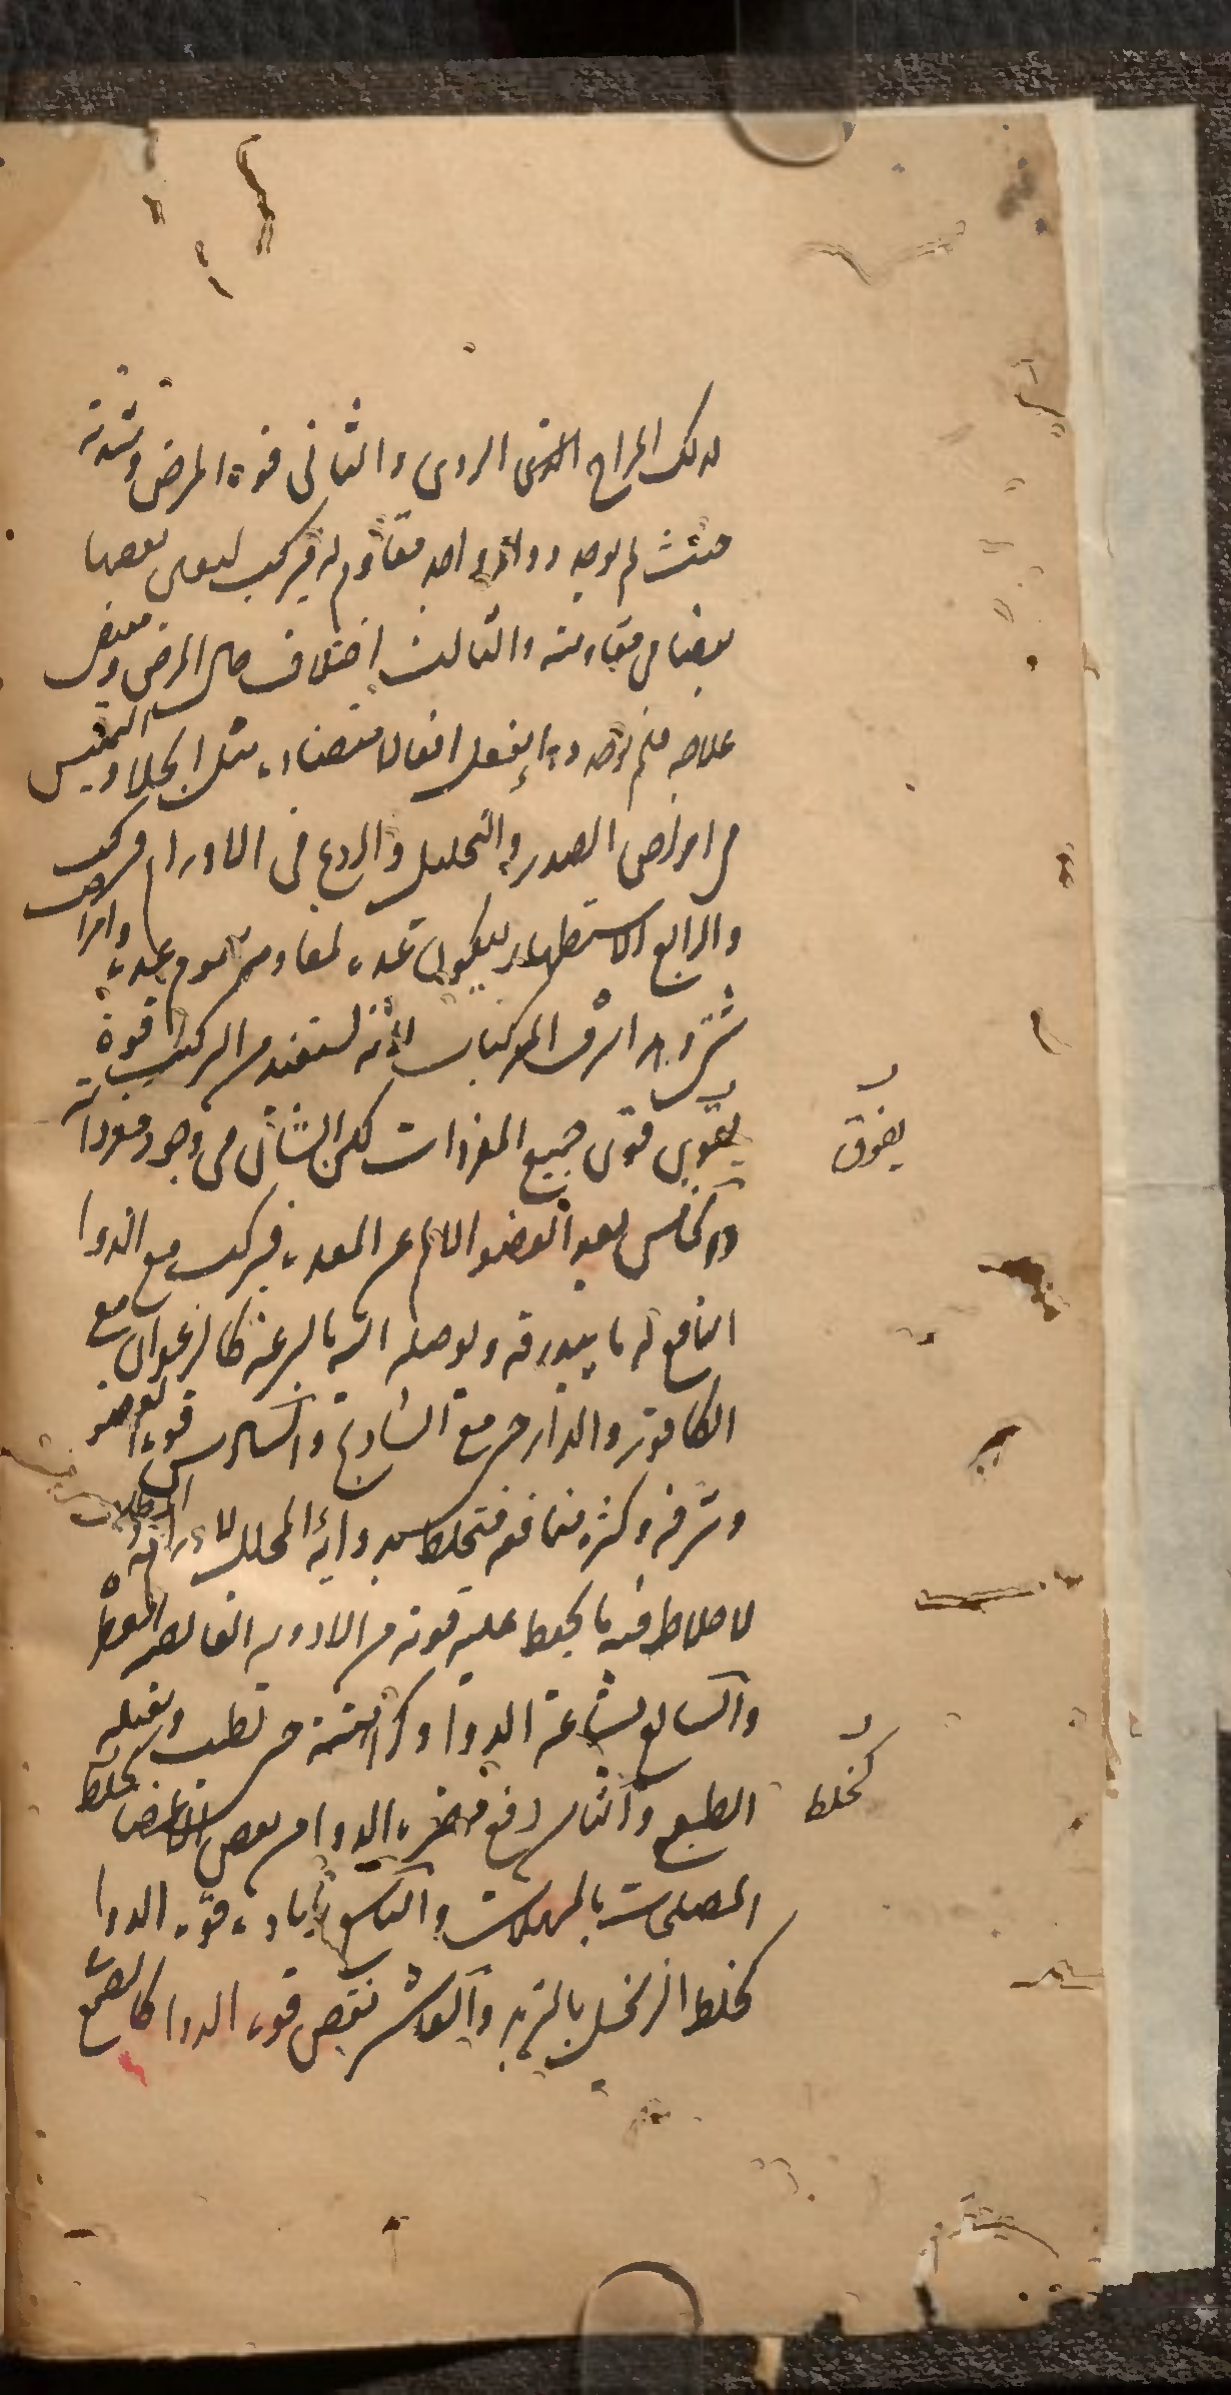 لذلك المزاج الردى والثانى قوة المرض وشدته
حيث لم يوجد دواء واحد مقاوم له فيركب ليعين بعضها
بعضا فى مقاومته والثالث اختلاف حال المرض
علاجه فلم يوجد دواء يفعل افعالا متضادة مثل الجلا والتمليس
فى امراض الصدر والتحليل والردع فى الاورام فيركب
والرابع الاستظهار ليكون عدة لمقاومة سموم عدة وامراض
شتى اشرف المركبات لانه يستفيد من التركيب قوة
يقوى قوى جميع المفردات لكن الشان فى وجود مفرداته
يفوق
والخامس بعد العضو الالم عن المعدة فيركب مع الدوا
النافع له ما يبدرقه ويوصله اليه بالسرعة كالزعفران مع
الكافور والذراريح مع والسادس قوة العضو
وشرفه وكثرة منافعه فتخلط بدوائه المحلل
لاخلاط فيه ما يحفظ عليه قوته من الادوية القابضة العطرة
والسابع بشاعة الدوا وكراهته حتى تطيب ويقبله
الطبع والثامن دفع مضرة الدوا من بعض الاعضا كخلط
كخلط
المصلحات بالمسهلات والتاسع زيادة قوة الدوا
كخلط الزنجبيل بالتربد والعاشر نقص قوة الدوا كالصمغ